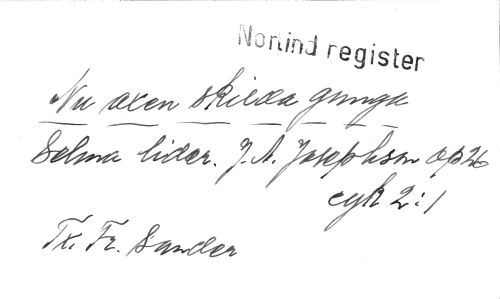 Norlind register
Nu axen skilda gunga
Selma lider. J. A. Josephson op 26
cyk 2:1
Tx. Fr. Sander